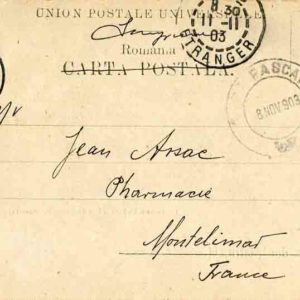 UNION POSTALE UNIVERSELLE
8 30
11-11
03
ETRANGER
Romania
CARTA POSTALA
PASCANI
8 NOV 903
Jean Arsac
Pharmacie
Montelimar
France